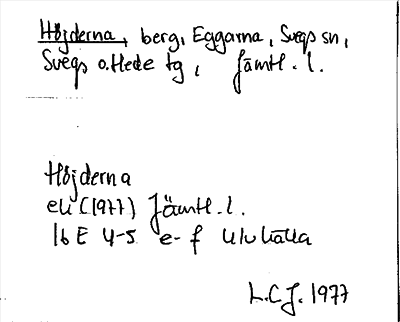 Höjderna, berg, Eggarna, Svegs sn,
Svegs o. Hede tg, Jämtl. l.
Höjderna
ek (1977) Jämtl. l.
16 E 4-5 e-f
L.C.J. 1977